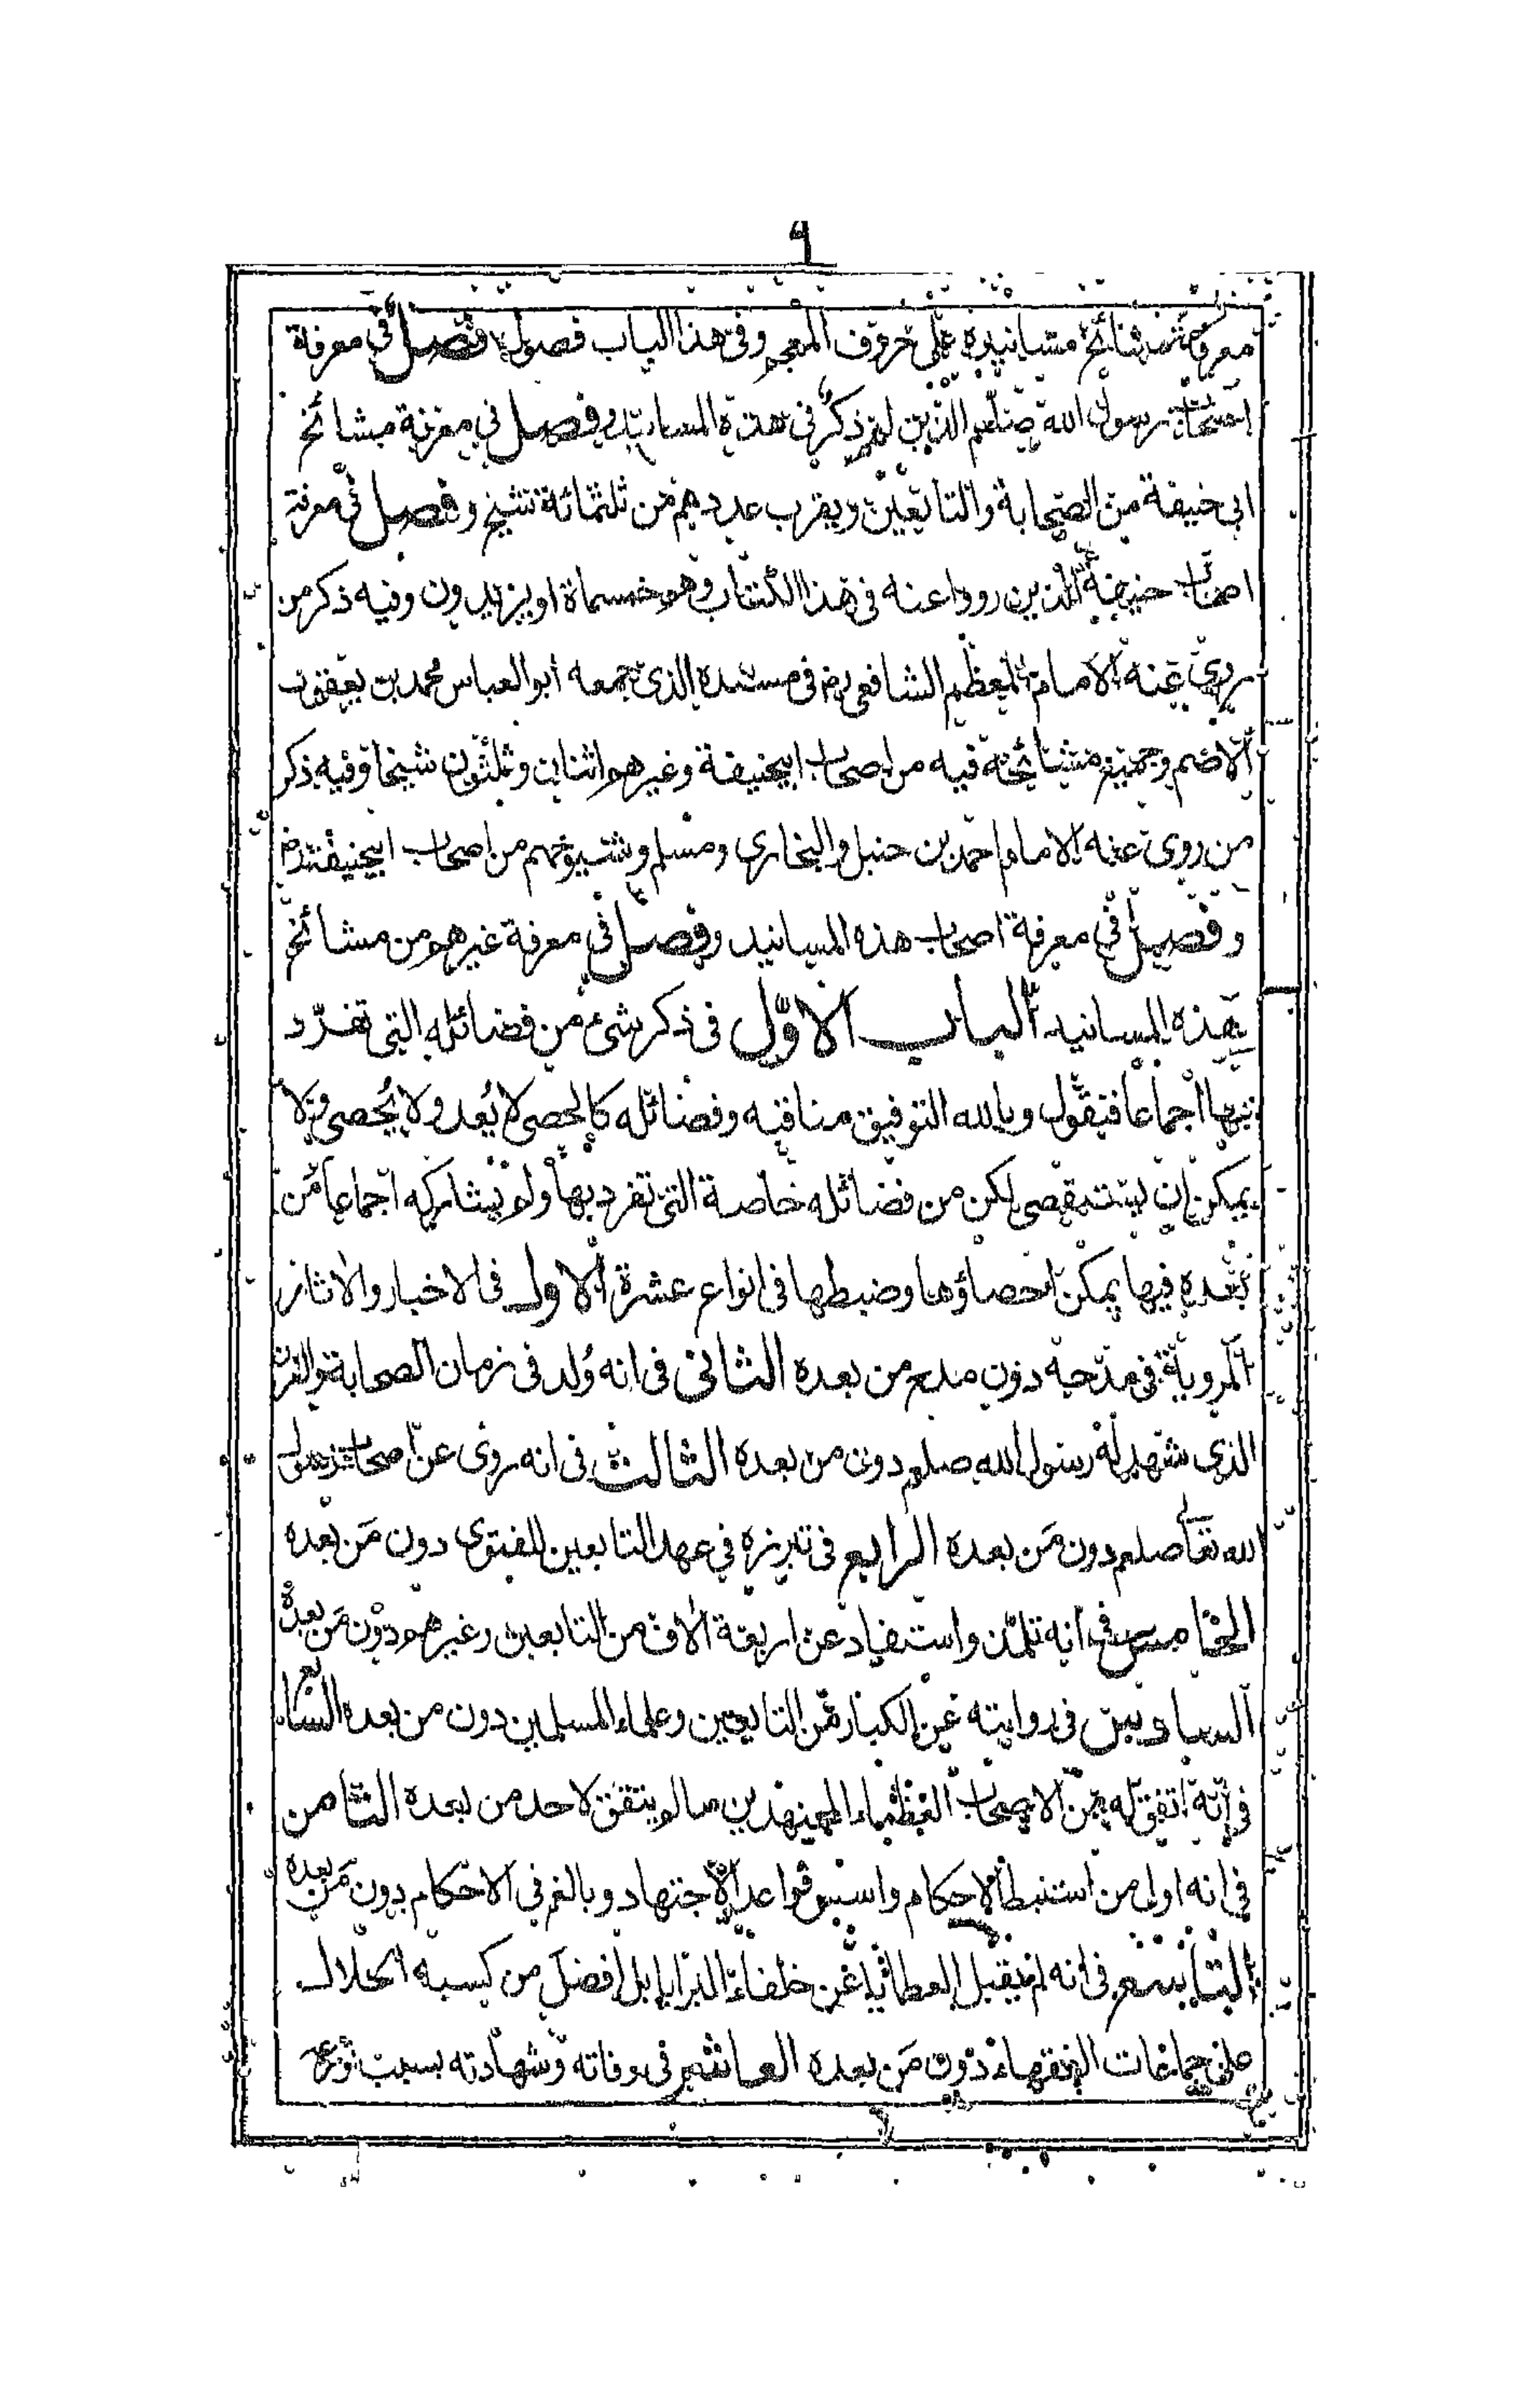 ٩
معرفة مشائخ مسانيده على حروف المعجم وفى هذا الباب فصول فصل في معرفة
اصحاب رسول الله صلعم الذين لهم ذكر فى هذه المسانيد وفصل في معرفة مشائخ
ابى حنيفة من الصحابة والتابعين ويقرب عددهم من ثلثمائة شيخ وفصل في معرفة
اصحاب حنيفة الذين رووا عنه فى هذا الكتاب وهو خمسماة او يزيدون وفيه ذكر من
روى عنه الامام المعظم الشافعى رح فى مسنده الذى جمعه ابو العباس محمد بن يعقوب
الاصم وجميع مشائخه فيه من اصحاب ابيحنيفة وغيرهم اثنان وثلثون شيخا وفيه ذكر
من روى عنه الامام احمد بن حنبل والبخارى ومسلم وشيوخهم من اصحاب ابيحنيفة رح
وفصل في معرفة اصحاب هذه المسانيد وفصل في معرفة غيرهم من مشائخ
هذه المسانيد الباب الاوّل فى ذكر شىء من فضائله التى تفرّد
بها اجماعا فنقول وبالله التوفيق مناقبه وفضائله كالحصى لا يُعد ولا يُحصى ولا
يمكن ان يستقصى لكن من فضائله خاصة التى تفرد بها ولم يشاركه اجماعا من
بعده فيها يمكن احصاؤها وضبطها فى انواع عشرة الاول فى الاخبار والاثار
المروية فى مدحه دون مدح من بعده الثانى فى انه وُلد فى زمان الصحابة والقرن
الذى شهد له رسول الله صلعم دون من بعده الثالث فى انه روى عن اصحاب رسول
الله تعالى صلعم دون مَن بعده الرابع فى تبرزه في عهد التابعين للفتوى دون مَن بعده
الخامس فى انه تلمّذ واستفاد عن اربعة الاف من التابعين وغيرهم دون مَن بعده
السادس فى روايته عن الكبار من التابعين وعلماء المسلمين دون من بعده السابع
فى انه اتفق له من الاصحاب العظماء المجتهدين ما لم يتفق لاحد من بعده الثامن
فى انه اول من استنبط الاحكام واسس قواعد الاجتهاد وبالغ فى الاحكام دون مَن بعده
التاسع فى انه لم يقبل العطايا عن خلفاء البرايا بل افضل من كسبه الحلال
على جماعات الفقهاء دون مَن بعده العاشر فى وفاته وشهادته بسبب تورعه